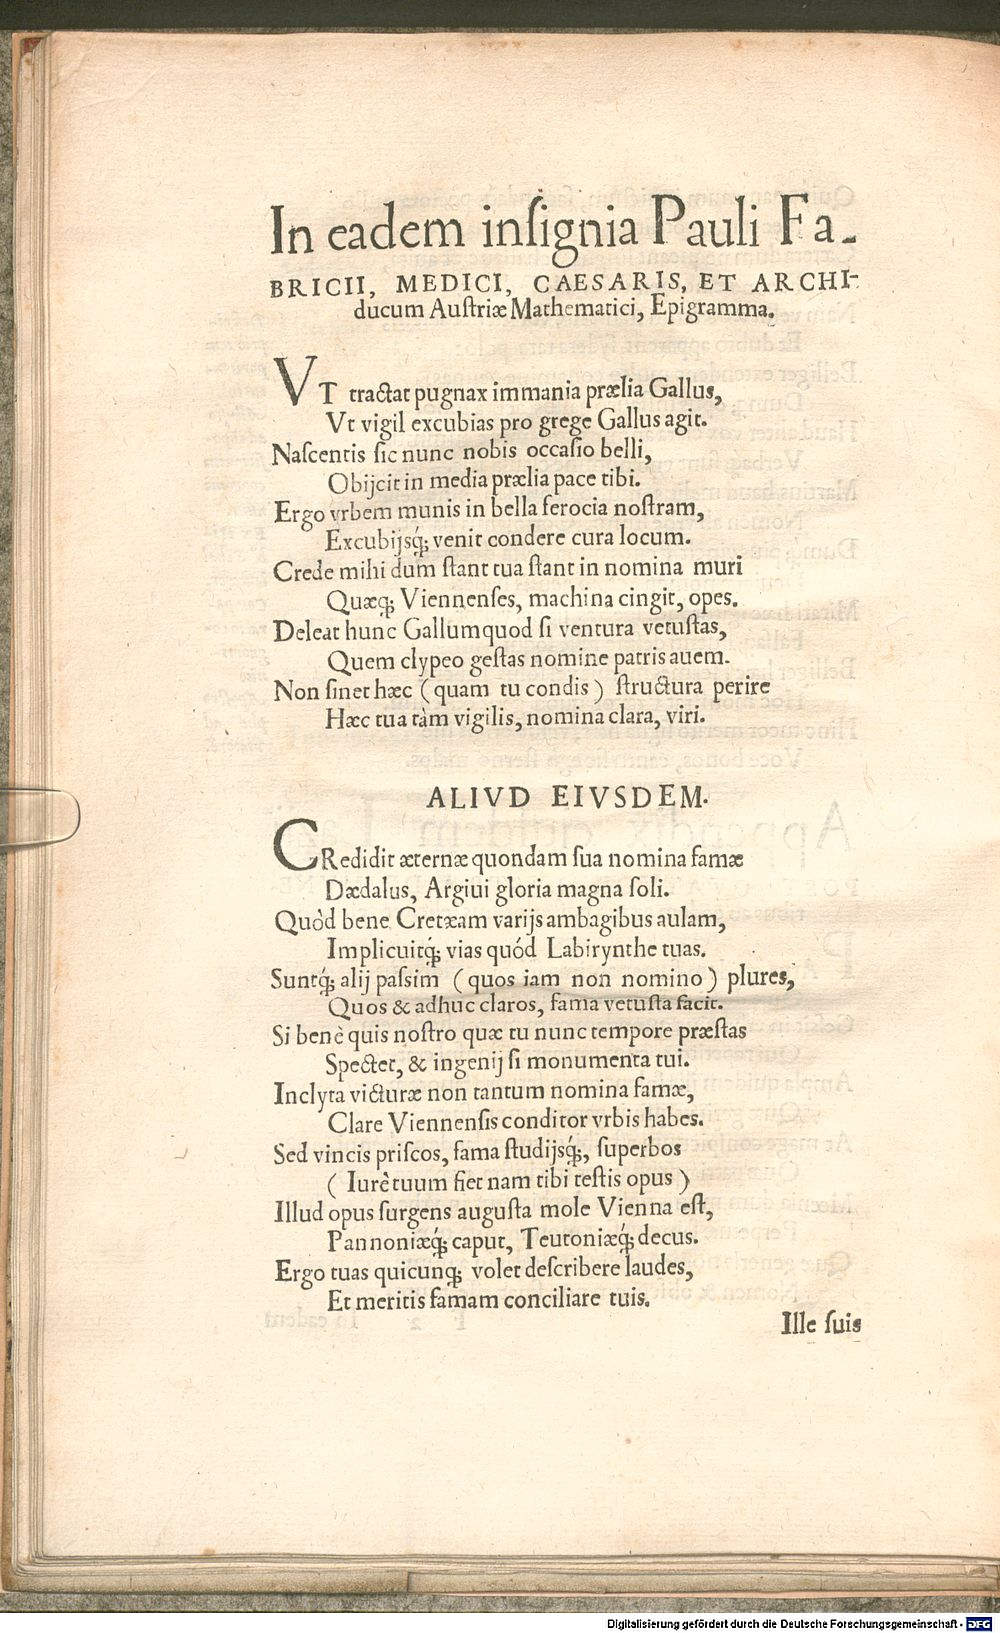 In eadem inſignia Pauli Fa-
BRICII, MEDICI, CAESARIS, ET ARCHI-
ducum Auſtriæ Mathematici, Epigramma.
VT tractat pugnax immania prælia Gallus,
Vt vigil excubias pro grege Gallus agit.
Naſcentis ſic nunc nobis occaſio belli,
Obijcit in media prælia pace tibi.
Ergo vrbem munis in bella ferocia noſtram,
Excubijsq́; venit condere cura locum.
Crede mihi dum ſtant tua ſtant in nomina muri
Quæq; Viennenſes, machina cingit, opes.
Deleat hunc Gallum quod ſi ventura vetuſtas,
Quem clypeo geſtas nomine patris auem.
Non ſinet hæc (quam tu condis) ſtructura perire
Hæc tua tàm vigilis, nomina clara, viri.
ALIVD EIVSDEM.
CRedidit æternæ quondam ſua nomina famæ
Dædalus, Argiui gloria magna ſoli.
Quòd bene Cretæam varijs ambagibus aulam,
Implicuitq́; vias quód Labirynthe tuas.
Suntq́; alij paſsim (quos iam non nomino) plures,
Quos & adhuc claros, fama vetuſta facit.
Si benè quis noſtro quæ tu nunc tempore præſtas
Spectet, & ingenij ſi monumenta tui.
Inclyta victuræ non tantum nomina famæ,
Clare Viennenſis conditor vrbis habes.
Sed vincis priſcos, fama ſtudijsq́;, ſuperbos
(Iurè tuum fiet nam tibi teſtis opus)
Illud opus ſurgens auguſta mole Vienna eſt,
Pannoniæq́; caput, Teutoniæq́; decus.
Ergo tuas quicunq; volet deſcribere laudes,
Et meritis famam conciliare tuis.
Ille ſuis
Digitalisierung gefördert durch die Deutsche Forschungsgemeinschaft - DFG